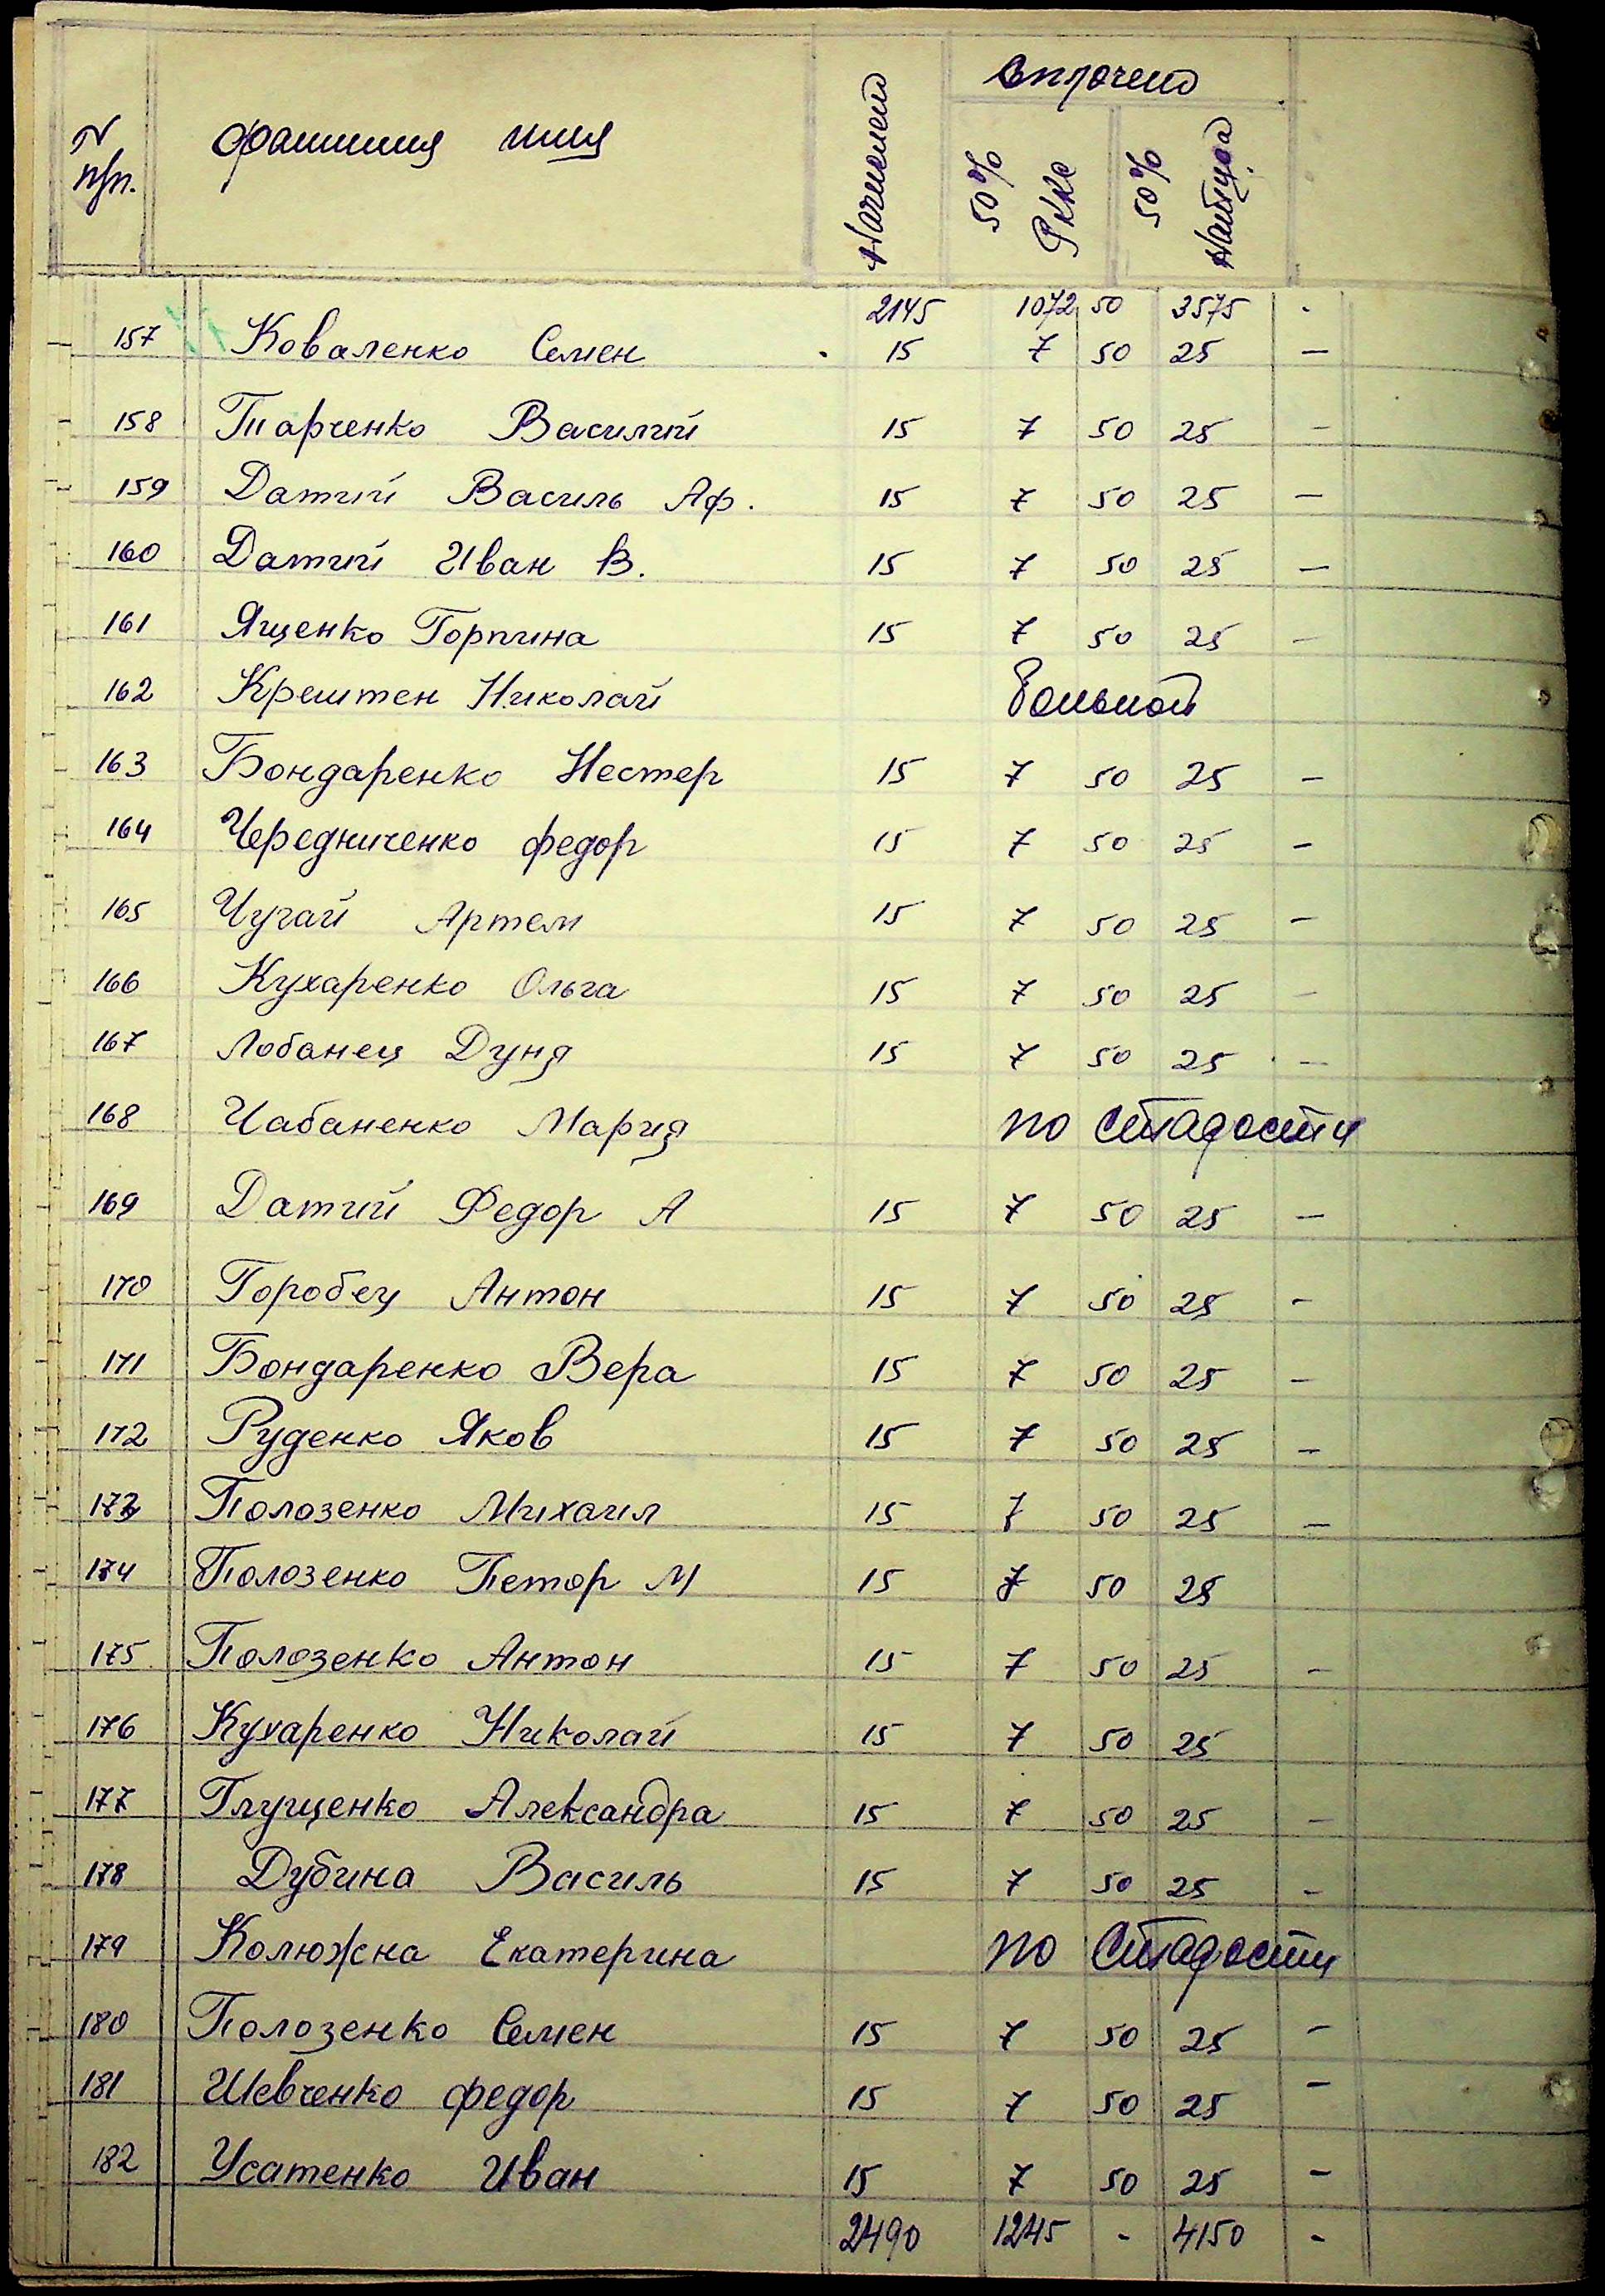 N п/п. фамилия имя Начислено Оплочено
50% РККА 50% Натурой
2145 1072 50 3575 -
157 Коваленко Семен 15 7 50 25 —
158 Тарченко Василий 15 7 50 25 —
159 Датий Василь Аф. 15 7 50 25 —
160 Датий Иван В. 15 7 50 25 —
161 Ященко Горпина 15 7 50 25 —
162 Крештен Николай больной
163 Бондаренко Нестер 15 7 50 25 —
164 Чередниченко федор 15 7 50 25 —
165 Чугай Артем 15 7 50 25 —
166 Кухаренко Ольга 15 7 50 25 —
167 Лобанец Дуня 15 7 50 25 —
168 Чабаненко Мария по старости
169 Датий Федор А 15 7 50 25 —
170 Горобец Антон 15 7 50 25 —
171 Бондаренко Вера 15 7 50 25 —
172 Руденко Яков 15 7 50 25 —
173 Полозенко Михаил 15 7 50 25 —
174 Полозенко Петор М 15 7 50 25
175 Полозенко Антон 15 7 50 25 —
176 Кухаренко Николай 15 7 50 25
177 Глущенко Александра 15 7 50 25 —
178 Дубина Василь 15 7 50 25 —
179 Колюжна Екатерина по старости
180 Полозенко Семен 15 7 50 25 —
181 Шевченко федор 15 7 50 25 —
182 Усатенко Иван 15 7 50 25 —
2490 1245 - 4150 -